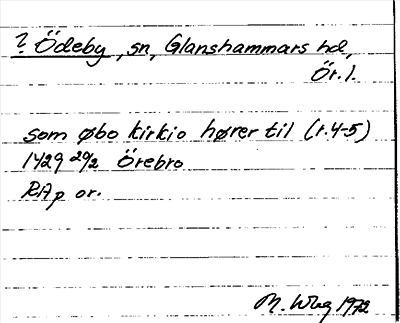 ? Ödeby, sn, Glanshammars hd,
Ör. l.
som øbo kirkio hører til (r.4-5)
1429 20/2 Örebro
RAp or.
M. Wbg 1972